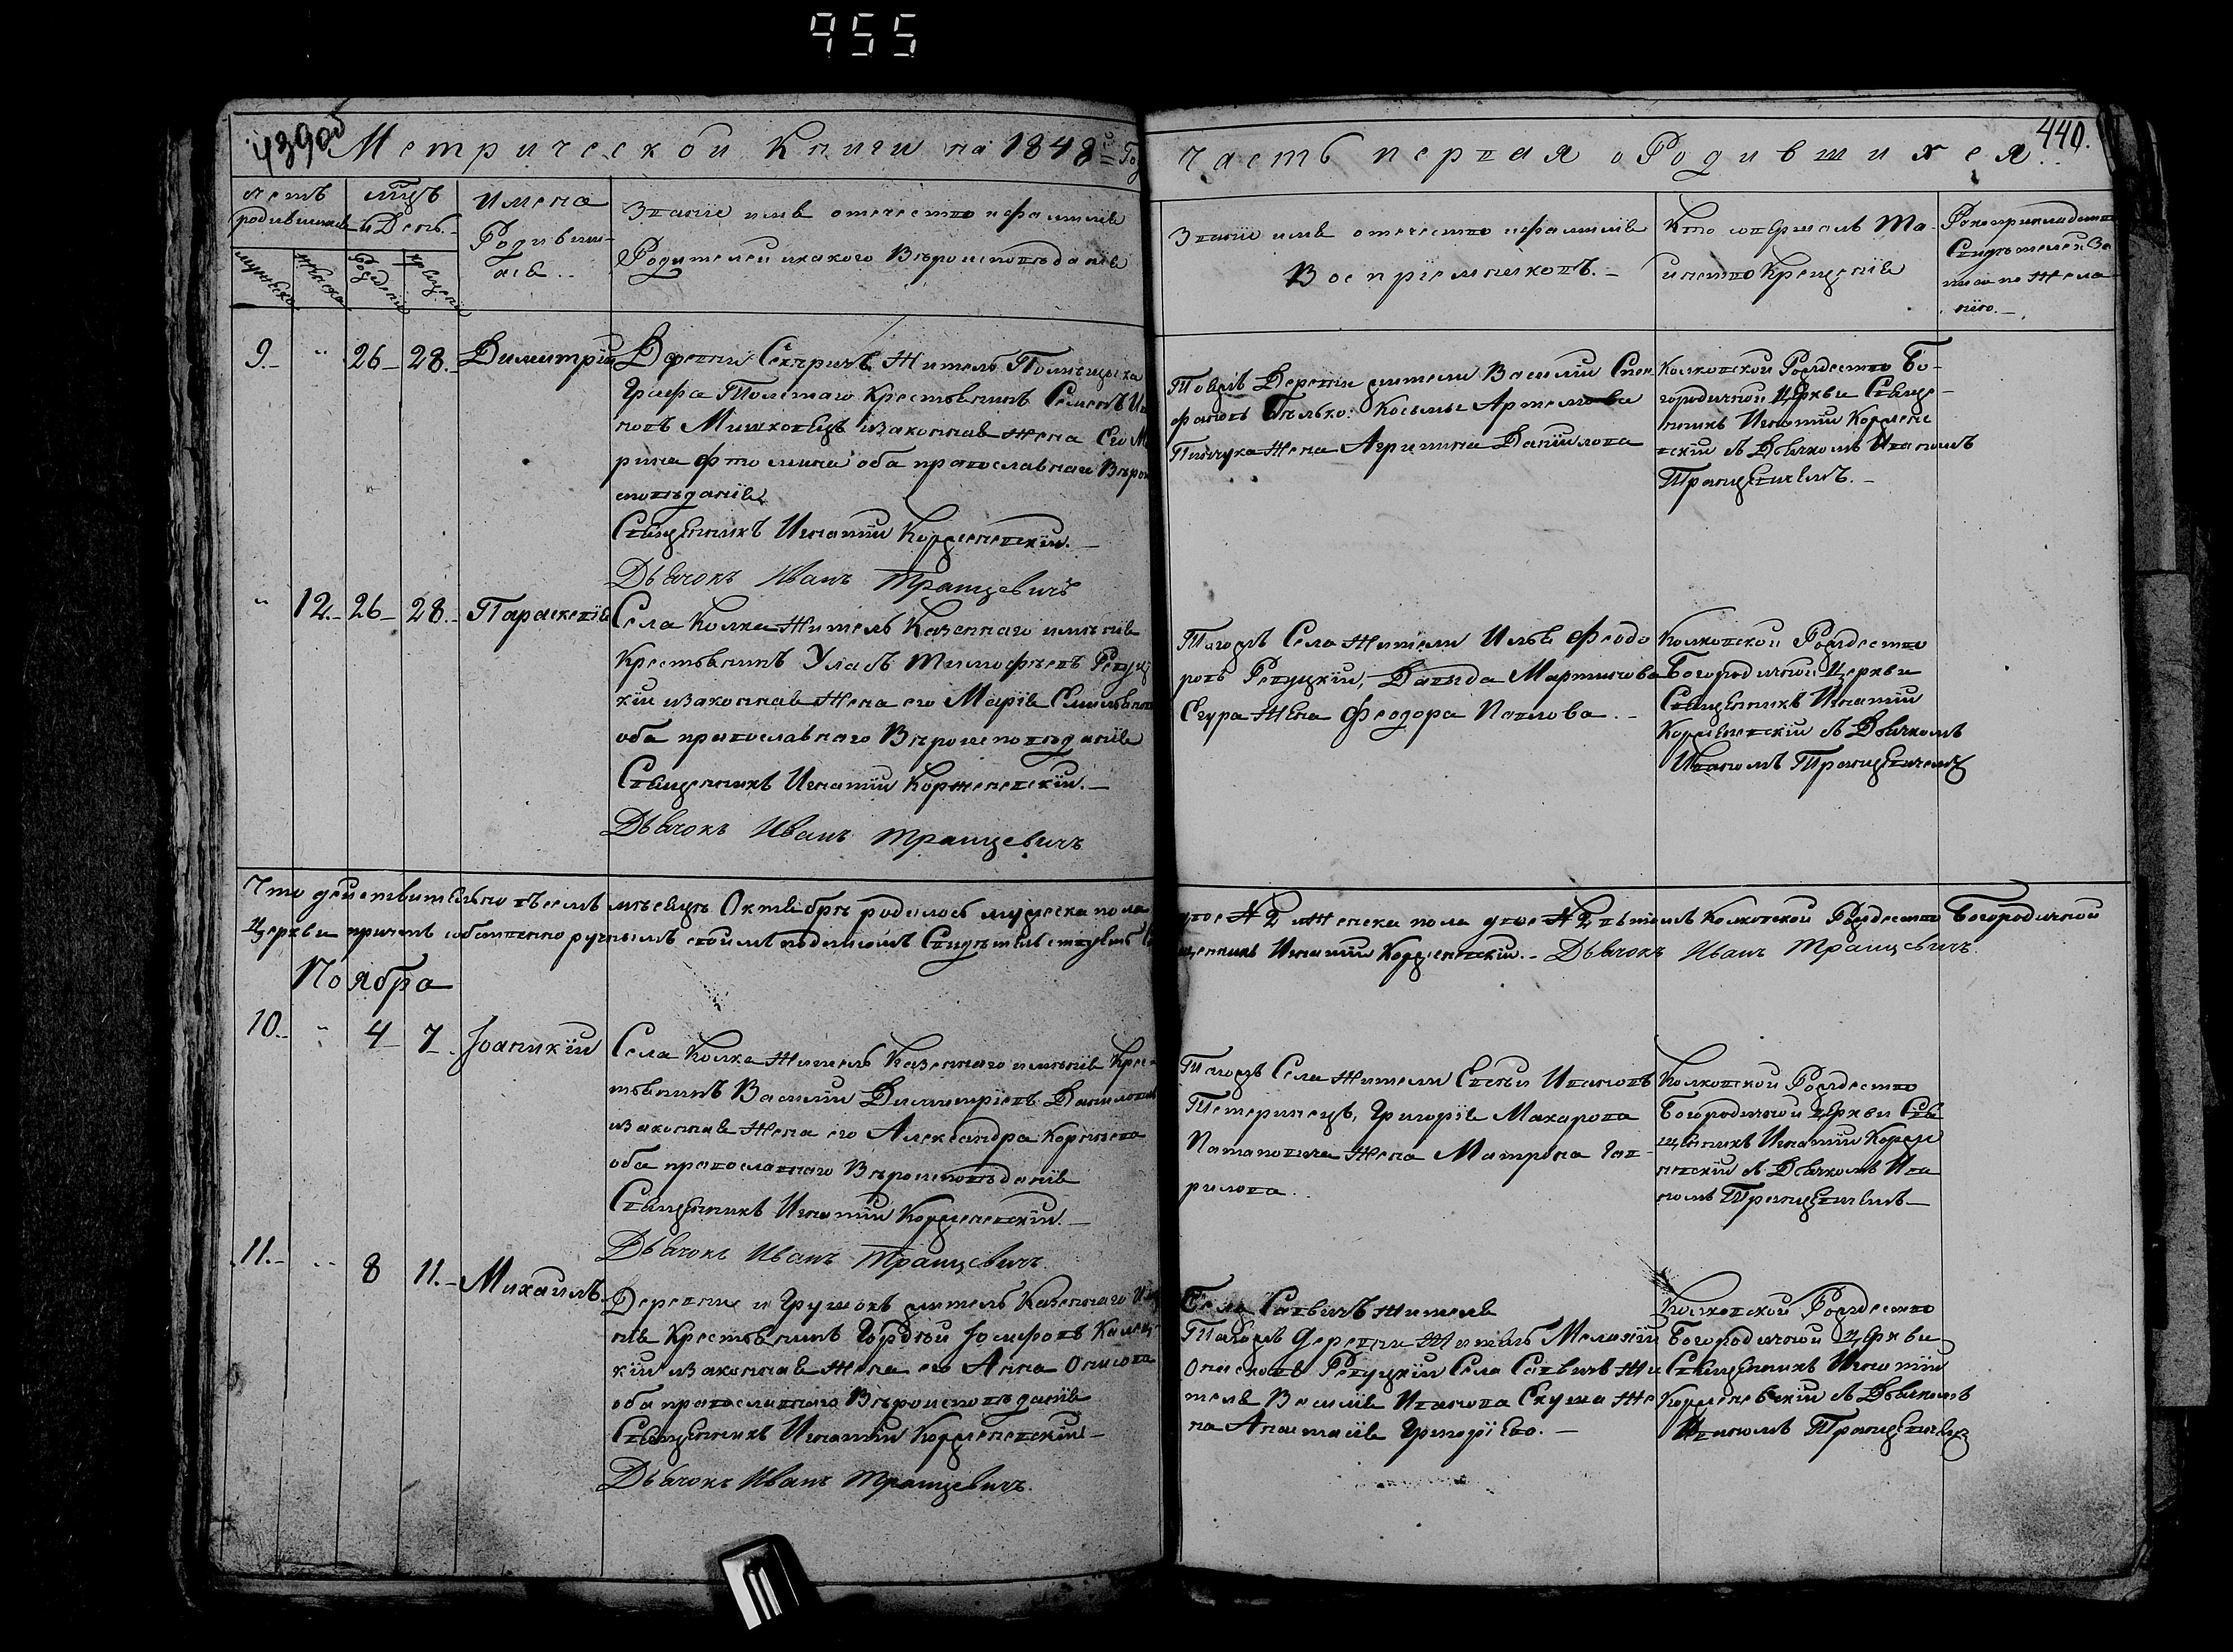 955
439об
Метрической Книги на 1848й Год
часть первая о Родившихся
440.
Счетъ
родившихся
мцъ
и День.
Имена
Родивши-
хся..
Званіе имя отечество и фамилія
Родителей и какого Вероисповеданія
мужеска
женска
рожденія
крещенія
Званіе имя отечество и фамилія
Воспріемниковъ.-
Кто совершалъ Та-
инство Крещенія
Рукоприкладство
Свидетелей За
писи по Жела
нію.-
9.- " 26- 28.- Димитрій
Деревни Жителъ Помещика
Графа Крестьянинъ Семенъ
новъ законная Жена Его
рина оба православнаго Веро
споведанія
Священникъ Игнатій Корженевскій.-
Дьячокъ Иванъ Транцевичъ
Тояжъ Деревни жители Василій
фановъ Косьмы Артемова
Жена Агрипина Данилова
Колковской Рождество Бо-
городичной Церкви Священ-
никъ Игнатій Коржене
вскій съ Дьячкомъ Иваномъ
Транцевичемъ.-
" 12.- 26- 28.- Параскевія
Села Колка Житель Казеннаго имѣнія
Крестьянинъ Тимофеевъ
кій законная Жена его Марія
оба православнаго Вероисповеданія
Священникъ Игнатій Корженевскій.-
Дьячокъ Иванъ Транцевичъ
Тогожъ Села Жители Илья Феодо
ровъ Ревуцкій, Давида Мартинова
Сгура Жена Феодора Павлова.-
Колковской Рождество
Богородичной Церкви
Священникъ Игнатій
Корженевскій съ Дьячкомъ
Иваномъ Транцевичемъ
Что действительно въ семъ месяце Октябре родилось мужеска пола
двое №2 и Женска пола двое №2 въ томъ Колковской Рождество Богородичной
Церкви причетъ собственноручнымъ своимъ подписомъ Свидетельствуетъ
щенникъ Игнатій Корженевскій.- Дьячокъ Иванъ Транцевичъ
Ноября
10.- " 4 7. Іоаникій
Села Колка Житель Казеннаго имѣнія Крес-
тьянинъ Василій Димитріевъ
законная Жена его Александра Корнеева
оба православнаго Вероисповеданія
Священникъ Игнатій Корженевскій.-
Дьячокъ Иванъ Транцевичъ.
Тогожъ Села Жители Ивановъ
Григорія Макарова
Жена Матрона Гав-
рилова..
Колковской Рождество
Богородичной Церкви Свя
щенникъ Игнатій Корже
невскій съ Дьячкомъ Ива
номъ Транцевичемъ-
11.- " 8 11.- Михаилъ
Деревни житель Казеннаго
нія Крестьянинъ Іосифовъ
кій законная Жена его Анна
оба православнаго Вероисповеданія
Священникъ Игнатій Корженевскій-
Дьячокъ Иванъ Транцевичъ.
Села Жителя
деревни Житель
Ревуцкій Села Жи
теля Василія Иванова Жe
на Анастасія Григоріева.-
Колковской Рождество
Богородичной Церкви
Священникъ Игнатій
Корженевскій съ Дьячкомъ
Иваномъ Транцевичемъ